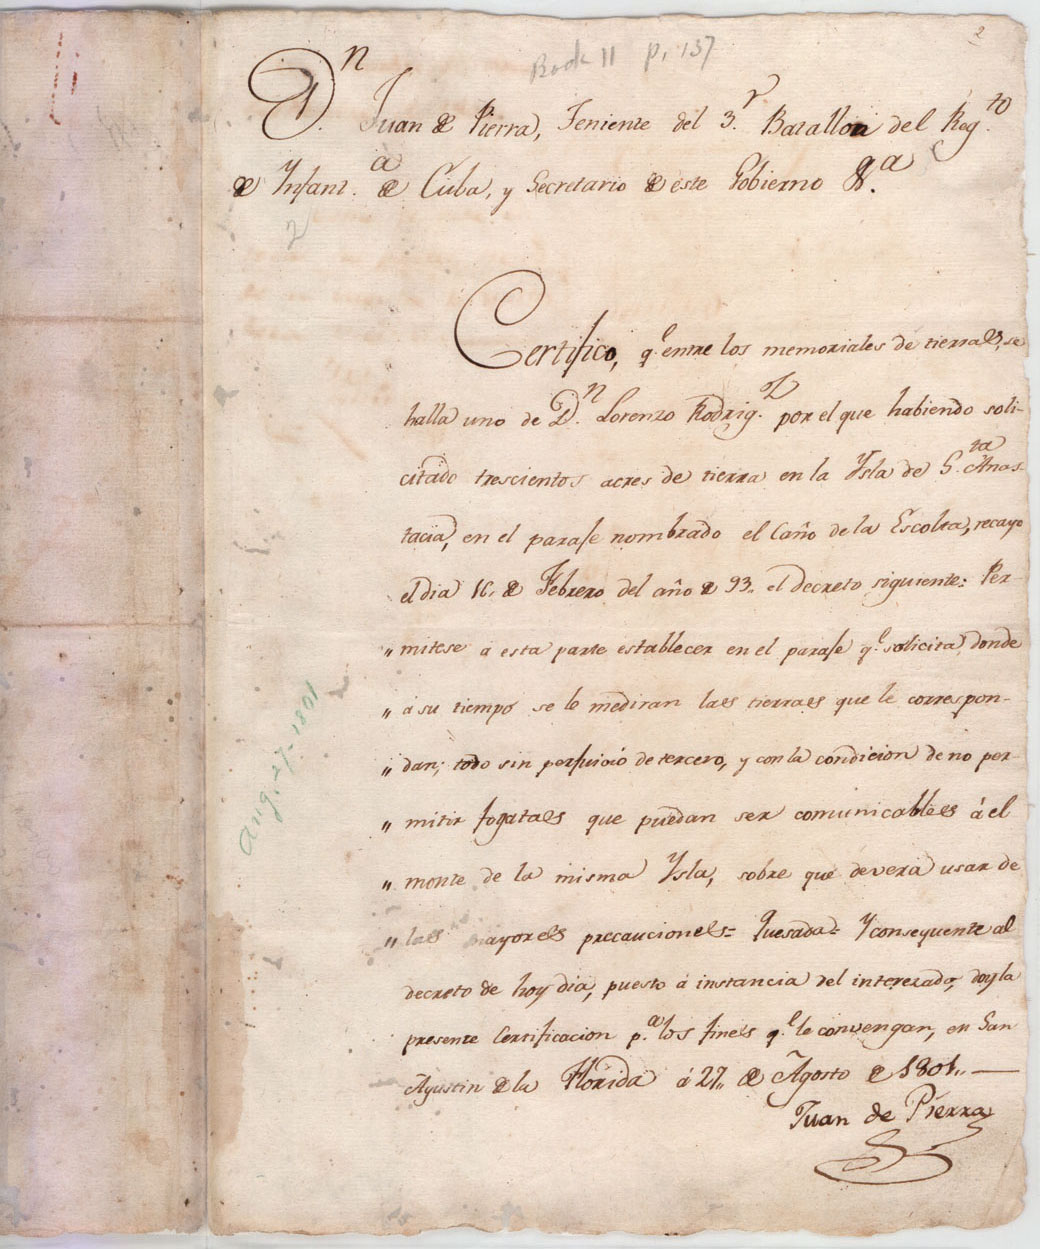 2
Book 11 p. 137
Dn. Juan de Pierra, Teniente del 3r. Batallon del Regto.
de Infanta. de Cuba, y Secretario de este Gobierno &a.
2
Certifico, qe. entre los memoriales de tierras, se
halla uno de Dn. Lorenzo Rodrigz. por el que habiendo soli-
citado trescientos acres de tierra en la Ysla de Sta. Anas-
tacia, en el paraje nombrado el Caño de la Escolta, recayo
el dia 16,, de Febrero del año de 93,, el decreto siguiente: Per-
„ mitese a esta parte establecer en el paraje qe. solicita, donde
„ a su tiempo se le mediran las tierras que le correspon-
„ dan; todo sin perjuicio de tercero, y con la condicion de no per-
„ mitir fogatas que puedan ser comunicables á el
„ monte de la misma Ysla, sobre que devera usar de
„ las mayores precauciones= Quesada= Y consequente al
decreto de hoy dia, puesto á instancia del interezado, doy la
presente Certificacion pa. los fines qe. le convengan, en San
Agustin de la Florida á 27,, de Agosto de 1801,,
Juan de Pierra
Aug. 27-1801